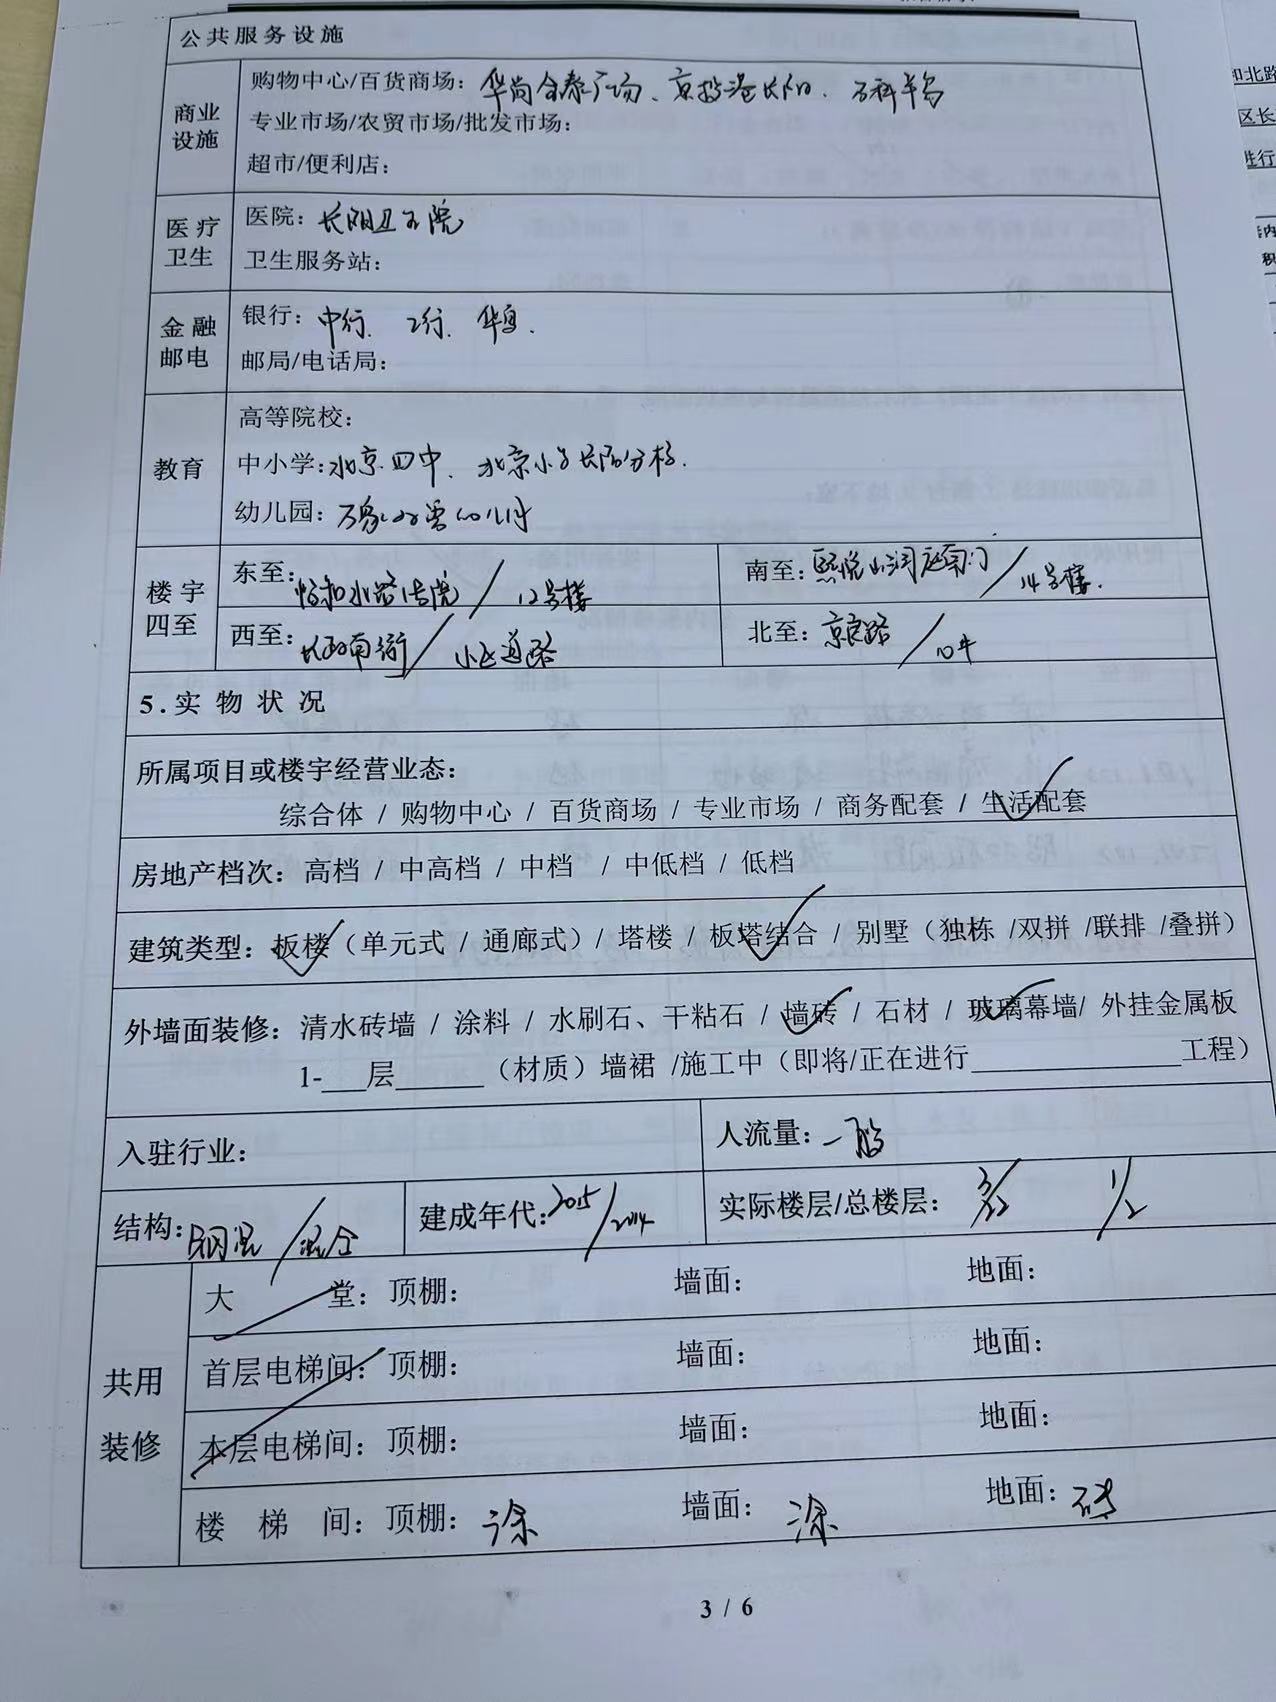 公共服务设施
商业设施
购物中心/百货商场：华尚金泰广场、京投港长阳、万科半岛
专业市场/农贸市场/批发市场：
超市/便利店：
医疗卫生
医院：长阳卫生院
卫生服务站：
金融邮电
银行：中行、工行、华夏.
邮局/电话局：
教育
高等院校：
中小学：北京四中、北京小学长阳分校.
幼儿园：
楼宇四至
东至： / 12号楼
南至：熙悦山洞庭南门 / 14号楼.
西至：长阳南街 / 小区道路
北至：京良路 /
5.实物状况
所属项目或楼宇经营业态：
综合体 / 购物中心 / 百货商场 / 专业市场 / 商务配套 / 生活配套
房地产档次：高档 / 中高档 / 中档 / 中低档 / 低档
建筑类型：板楼（单元式 / 通廊式）/ 塔楼 / 板塔结合 / 别墅（独栋 /双拼 /联排 /叠拼）
外墙面装修：清水砖墙 / 涂料 / 水刷石、干粘石 / 墙砖 / 石材 / 玻璃幕墙/ 外挂金属板
1-___层______（材质）墙裙 /施工中（即将/正在进行______________工程）
入驻行业：
人流量：一般
结构：钢混 / 混合
建成年代：2015 / 2014
实际楼层/总楼层：3/22 1/2
共用装修
大 堂：顶棚： 墙面： 地面：
首层电梯间：顶棚： 墙面： 地面：
本层电梯间：顶棚： 墙面： 地面：
楼 梯 间：顶棚：涂 墙面：涂 地面：砖
3 / 6